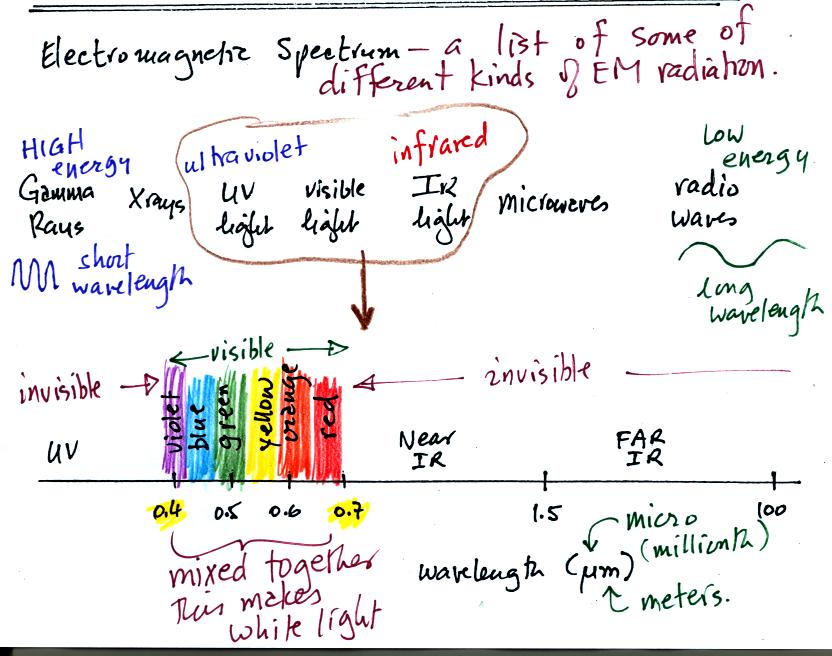 Electromagnetic Spectrum - a list of some of
different kinds of EM radiation.
HIGH
energy
Gamma
Rays
short
wavelength
Xrays
ultraviolet
UV
light
visible
light
infrared
IR
light
microwaves
LOW
energy
radio
waves
long
wavelength
visible
invisible
invisible
UV
violet
blue
green
yellow
orange
red
Near
IR
FAR
IR
0.4 0.5 0.6 0.7 1.5 100
mixed together
this makes
white light
wavelength (μm)
micro
(millionth)
meters.